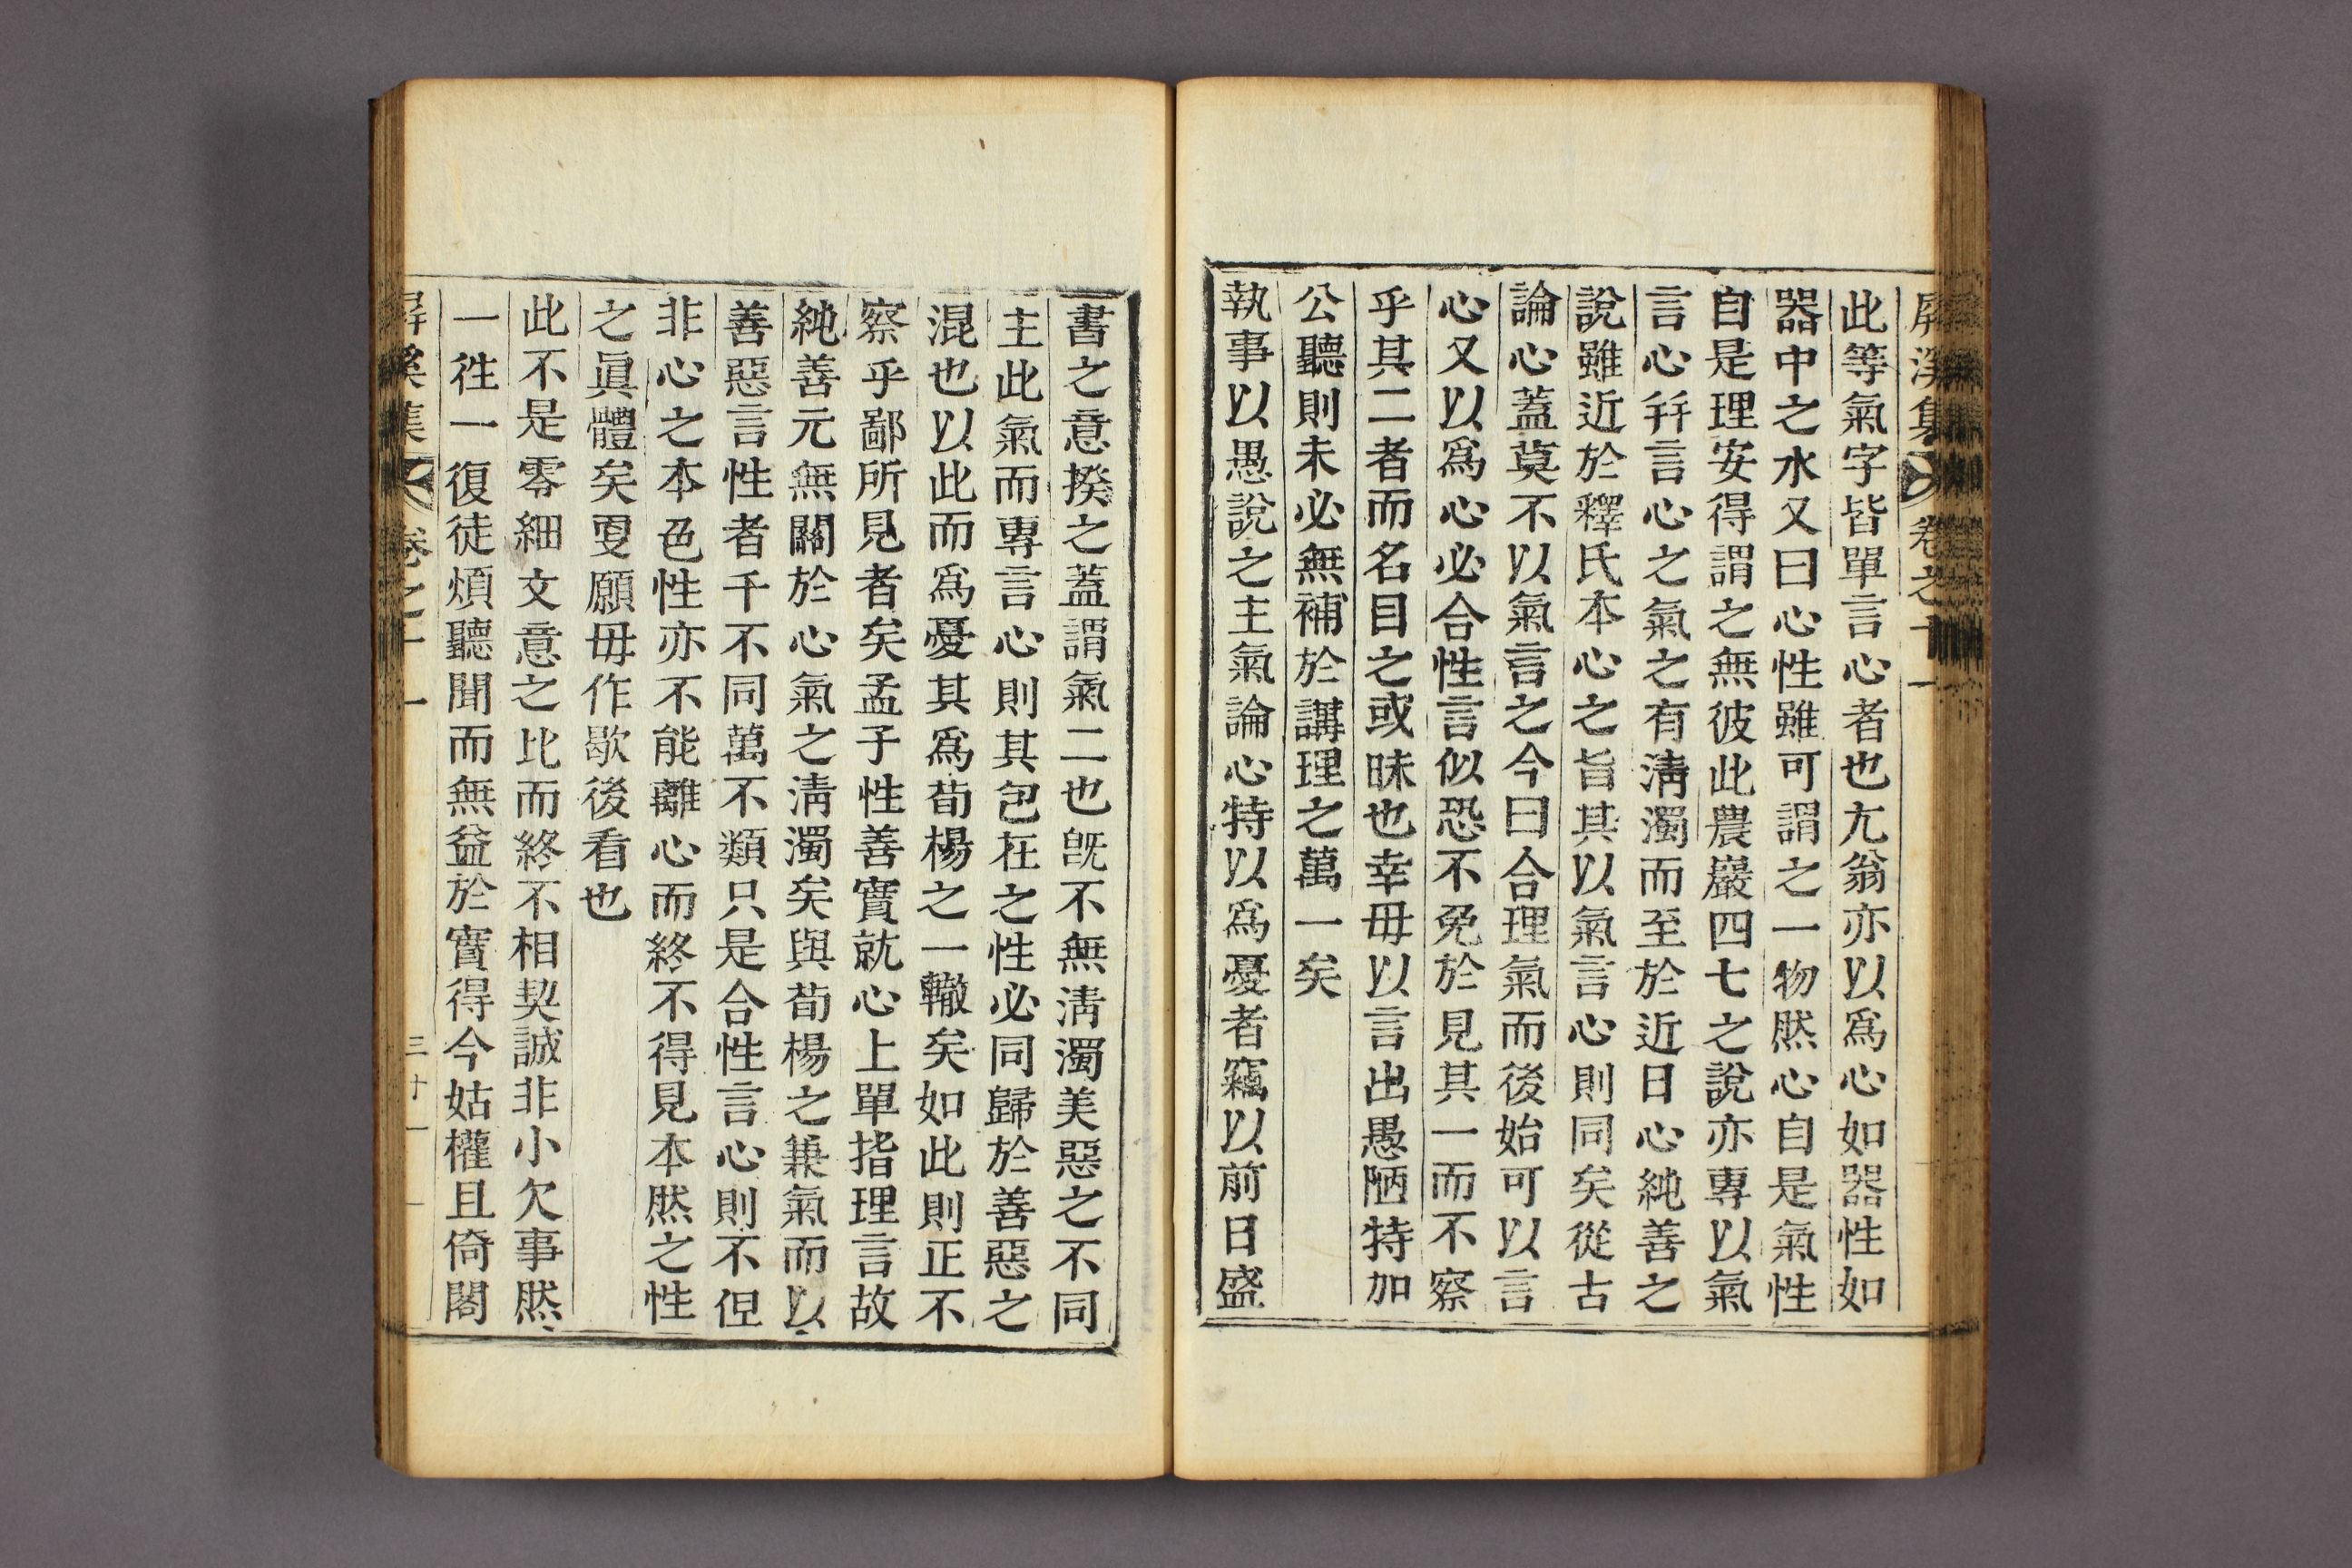 屛溪集 卷之十一
此等氣字皆單言心者也尤翁亦以爲心如器性如
器中之水又曰心性雖可謂之一物然心自是氣性
自是理安得謂之無彼此農巖四七之說亦專以氣
言心幷言心之氣之有淸濁而至於近日心純善之
說雖近於釋氏本心之旨其以氣言心則同矣從古
論心蓋莫不以氣言之今曰合理氣而後始可以言
心又以爲心必合性言似恐不免於見其一而不察
乎其二者而名目之或昧也幸毋以言出愚陋特加
公聽則未必無補於講理之萬一矣
執事以愚說之主氣論心特以爲憂者竊以前日盛
書之意揆之蓋謂氣二也旣不無淸濁美惡之不同
主此氣而專言心則其包在之性必同歸於善惡之
混也以此而爲憂其爲荀楊之一轍矣如此則正不
察乎鄙所見者矣孟子性善實就心上單指理言故
純善元無關於心氣之淸濁矣與荀楊之兼氣而以
善惡言性者千不同萬不類只是合性言心則不但
非心之本色性亦不能離心而終不得見本然之性
之眞體矣更願毋作歇後看也
此不是零細文意之比而終不相契誠非小欠事然
一徃一復徒煩聽聞而無益於實得今姑權且倚閣
屛溪集 卷之十一 三十一